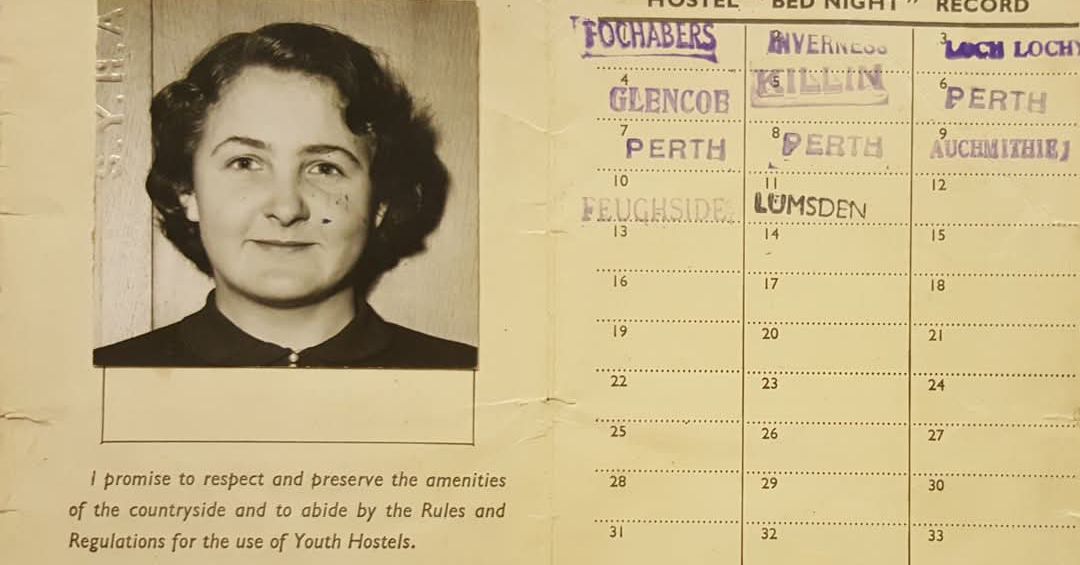 S.Y.H.A
I promise to respect and preserve the amenities
of the countryside and to abide by the Rules and
Regulations for the use of Youth Hostels.
HOSTEL "BED NIGHT" RECORD
FOCHABERS INVERNESS 3 LOCH LOCHY
4 5 6
GLENCOE KILLIN PERTH
7 8 9
PERTH PERTH AUCHMITHIE
10 11 12
FEUGHSIDE LUMSDEN
13 14 15
16 17 18
19 20 21
22 23 24
25 26 27
28 29 30
31 32 33